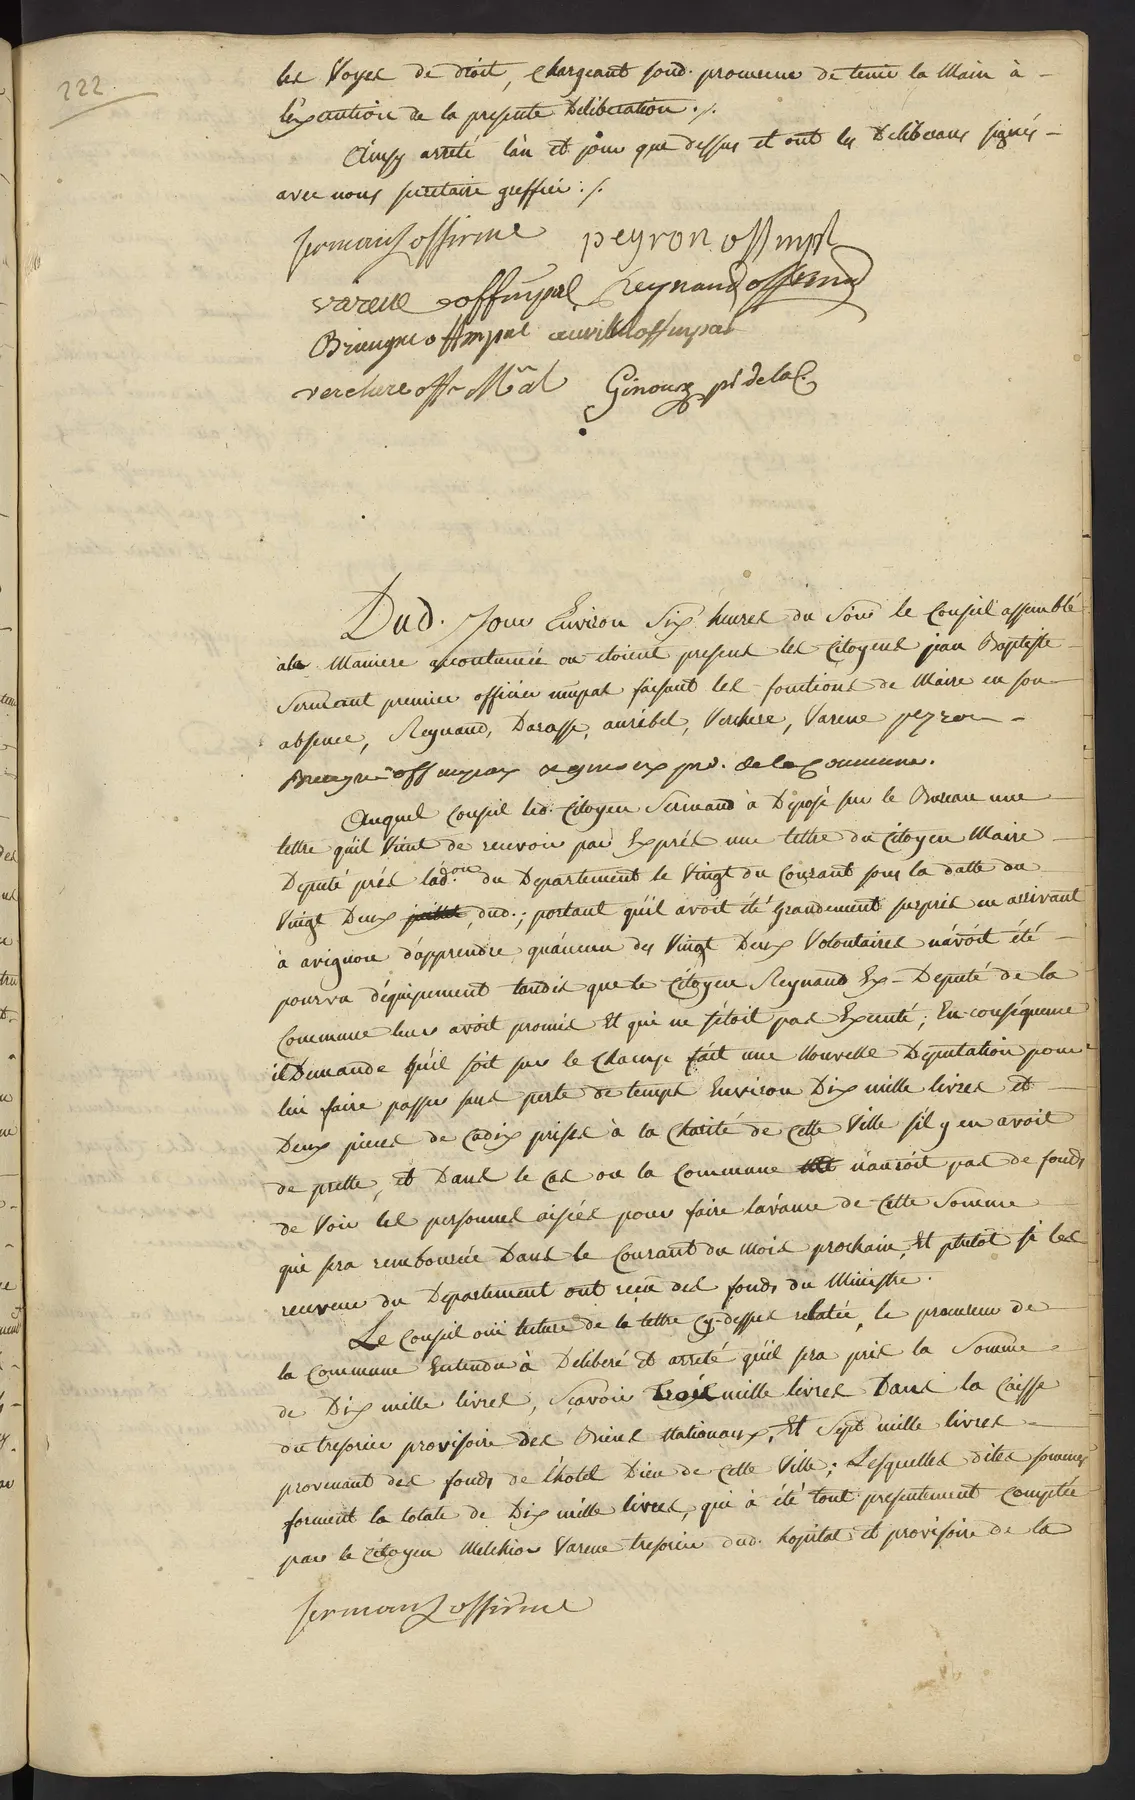 222.
les Voyes de droit, chargeant sond. procureur de tenir la Main à
l'éxécution de la presente Déliberation ./.
Ainsy arreté l'an et jour que dessus et ont les Déliberans signés
avec nous secretaire greffier :/.
sermant offimme peyron off mpl
varene offmpal Reynaud offmal
off mpal offmpal
verchere off Mal Ginoux pr de la C
Dud. Jour Environ Six heures du Soir le Conseil assemblé
a la Maniere acoutumée ou étoient presens les Citoyens jean Baptiste
Sermant premier officier mupal faisant les fonctions de Maire en son
absence, Reynaud, Darasse, auribel, Verchere, Varene peyron
off mupaux et ginoux pr. de la Commune.
Auquel Conseil led. Citoyen Sermand à Déposé sur le Bureau une
lettre qu'il Vient de recevoir par Exprés une lettre du Citoyen Maire
Deputé prés l'ad.on du Departement le Vingt du Courant sous la datte du
Vingt Deux dud.; portant qu'il avoit été Grandement surpris en arrivant
à avignon d'apprendre qu'aucun des Vingt Deux Volontaires n'avoit été
pourvu d'équipement tandis que le Citoyen Reynaud Ex-Deputé de la
Commune leurs avoit promis Et qui ne s'étoit pas Executé; En conséquence
il Demande qu'il soit sur le Champ fait une Nouvelle Deputation pour
lui faire passer sans perte de temps Environ Dix mille livres et
Deux pieces de Cadix prises à la Charité de Cette Ville s'il y en avoit
de prette, et Dans le Cas ou la Commune n'auroit pas de fonds
de Voir les personnes aisées pour faire l'avance de Cette Somme
qui sera remboursée Dans le Courant du Mois prochain, Et plutôt si les
receveur du Departement ont reçu des fonds du Ministre.
Le Conseil oui lecture de la lettre Cy-dessus relatée, le procureur de
la Commune Entendu à Deliberé et arreté qu'il sera pris la Somme
de Dix mille livres, Sçavoir trois mille livres Dans la Caisse
du tresorier provisoire des Biens Nationaux, Et Sept mille livres
provenant des fonds de l'hotel Dieu de Cette Ville; Lesquelles dites sommes
forment la totale de Dix mille livres, qui à été tout presentement comptée
par le Citoyen Melchior Varene tresorier dud. hopital et provisoire de la
sermant offimme